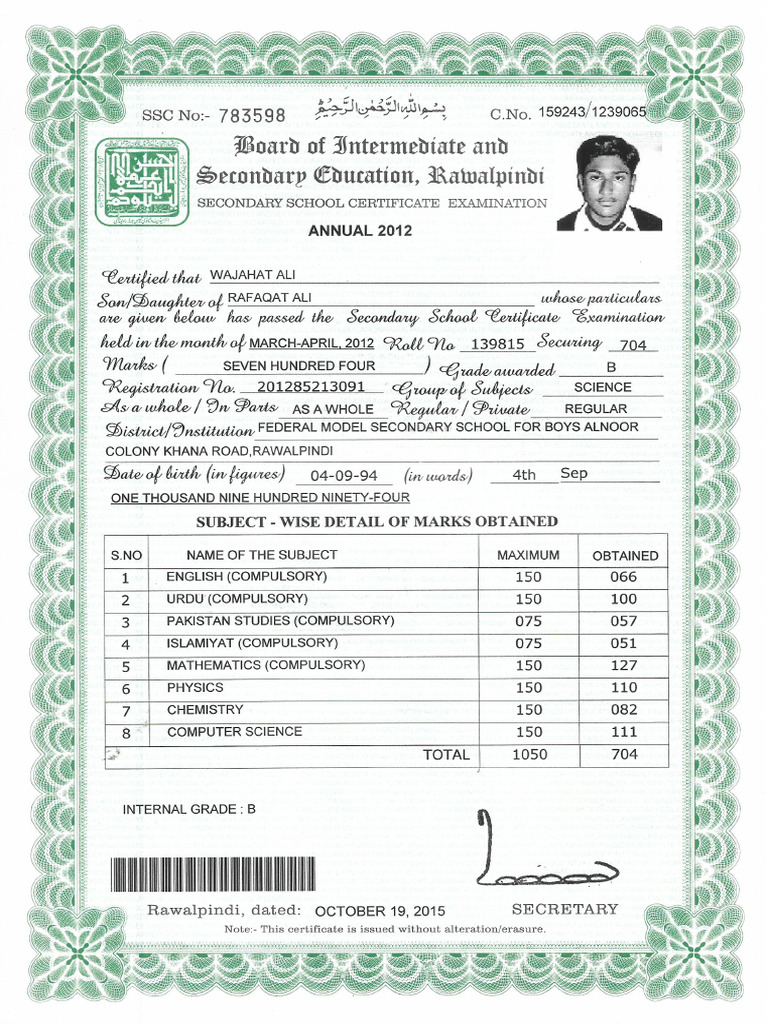 SSC No:- 783598
بِسْمِ اللهِ الرَّحْمٰنِ الرَّحِيْمِ
C.No. 159243/1239065
Board of Intermediate and
Secondary Education, Rawalpindi
SECONDARY SCHOOL CERTIFICATE EXAMINATION
ANNUAL 2012
Certified that WAJAHAT ALI
Son/Daughter of RAFAQAT ALI whose particulars
are given below has passed the Secondary School Certificate Examination
held in the month of MARCH-APRIL, 2012 Roll No 139815 Securing 704
Marks ( SEVEN HUNDRED FOUR ) Grade awarded B
Registration No. 201285213091 Group of Subjects SCIENCE
As a whole / In Parts AS A WHOLE Regular / Private REGULAR
District/Institution FEDERAL MODEL SECONDARY SCHOOL FOR BOYS ALNOOR
COLONY KHANA ROAD,RAWALPINDI
Date of birth (in figures) 04-09-94 (in words) 4th Sep
ONE THOUSAND NINE HUNDRED NINETY-FOUR
SUBJECT - WISE DETAIL OF MARKS OBTAINED
S.NO NAME OF THE SUBJECT MAXIMUM OBTAINED
1 ENGLISH (COMPULSORY) 150 066
2 URDU (COMPULSORY) 150 100
3 PAKISTAN STUDIES (COMPULSORY) 075 057
4 ISLAMIYAT (COMPULSORY) 075 051
5 MATHEMATICS (COMPULSORY) 150 127
6 PHYSICS 150 110
7 CHEMISTRY 150 082
8 COMPUTER SCIENCE 150 111
TOTAL 1050 704
INTERNAL GRADE : B
Rawalpindi, dated: OCTOBER 19, 2015 SECRETARY
Note:- This certificate is issued without alteration/erasure.